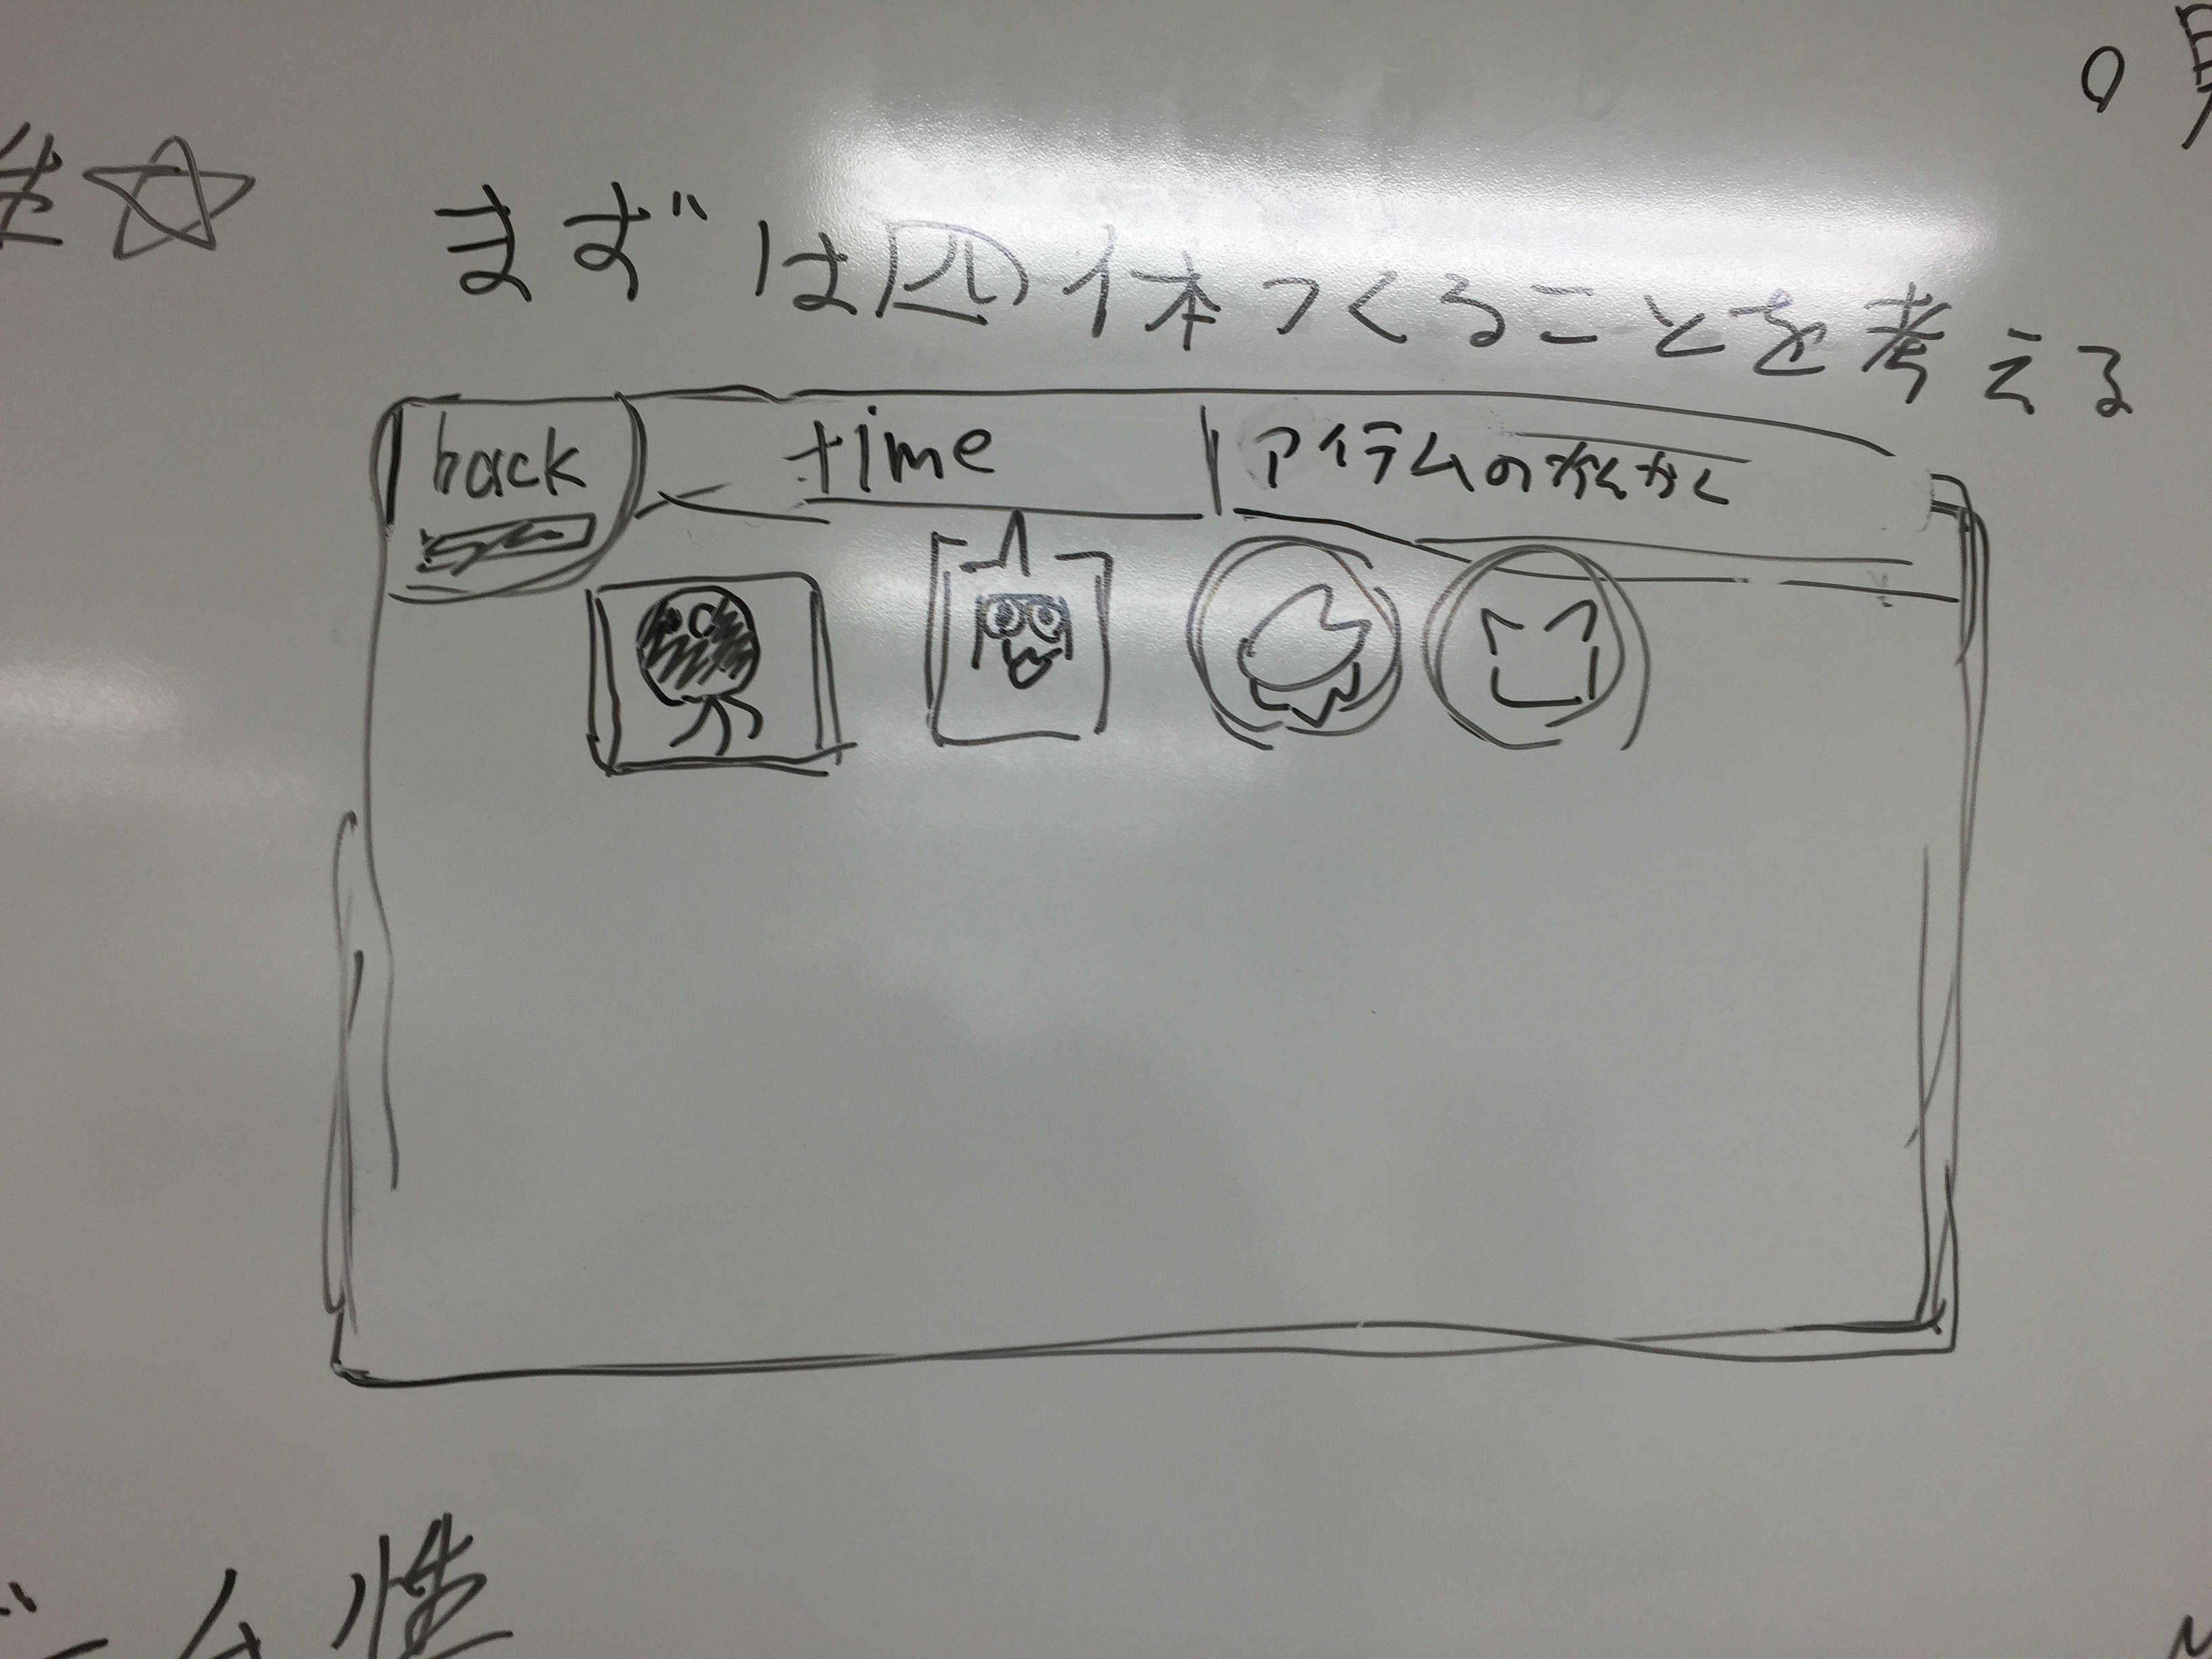 性☆
まずは四体つくることを考える
back
time
アイテムのかんかく
ーム性